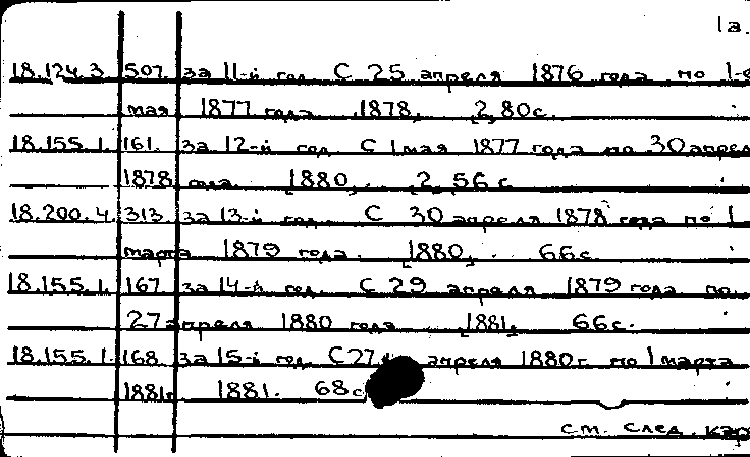 1а.
18.124.3. 507. за 11-й год. С 25 апреля 1876 года по 1-е
мая 1877 года [1878]. 2,80с.
18.155.1. 161. за 12-й год. С 1 мая 1877 года по 30 апрел
1878 года. [1880]. 2,56 с.
18.200.4. 313. за 13-й год. С 30 апреля 1878 года по 1
марта 1879 года. [1880]. 66с.
18.155.1. 167. за 14-й год. С 29 апреля 1879 года по
27 апреля 1880 года [1881]. 66с.
18.155.1. 168. за 15-й год. С 27 апреля 1880г. по 1 марта
1881г. 1881. 68с
см. след. кар